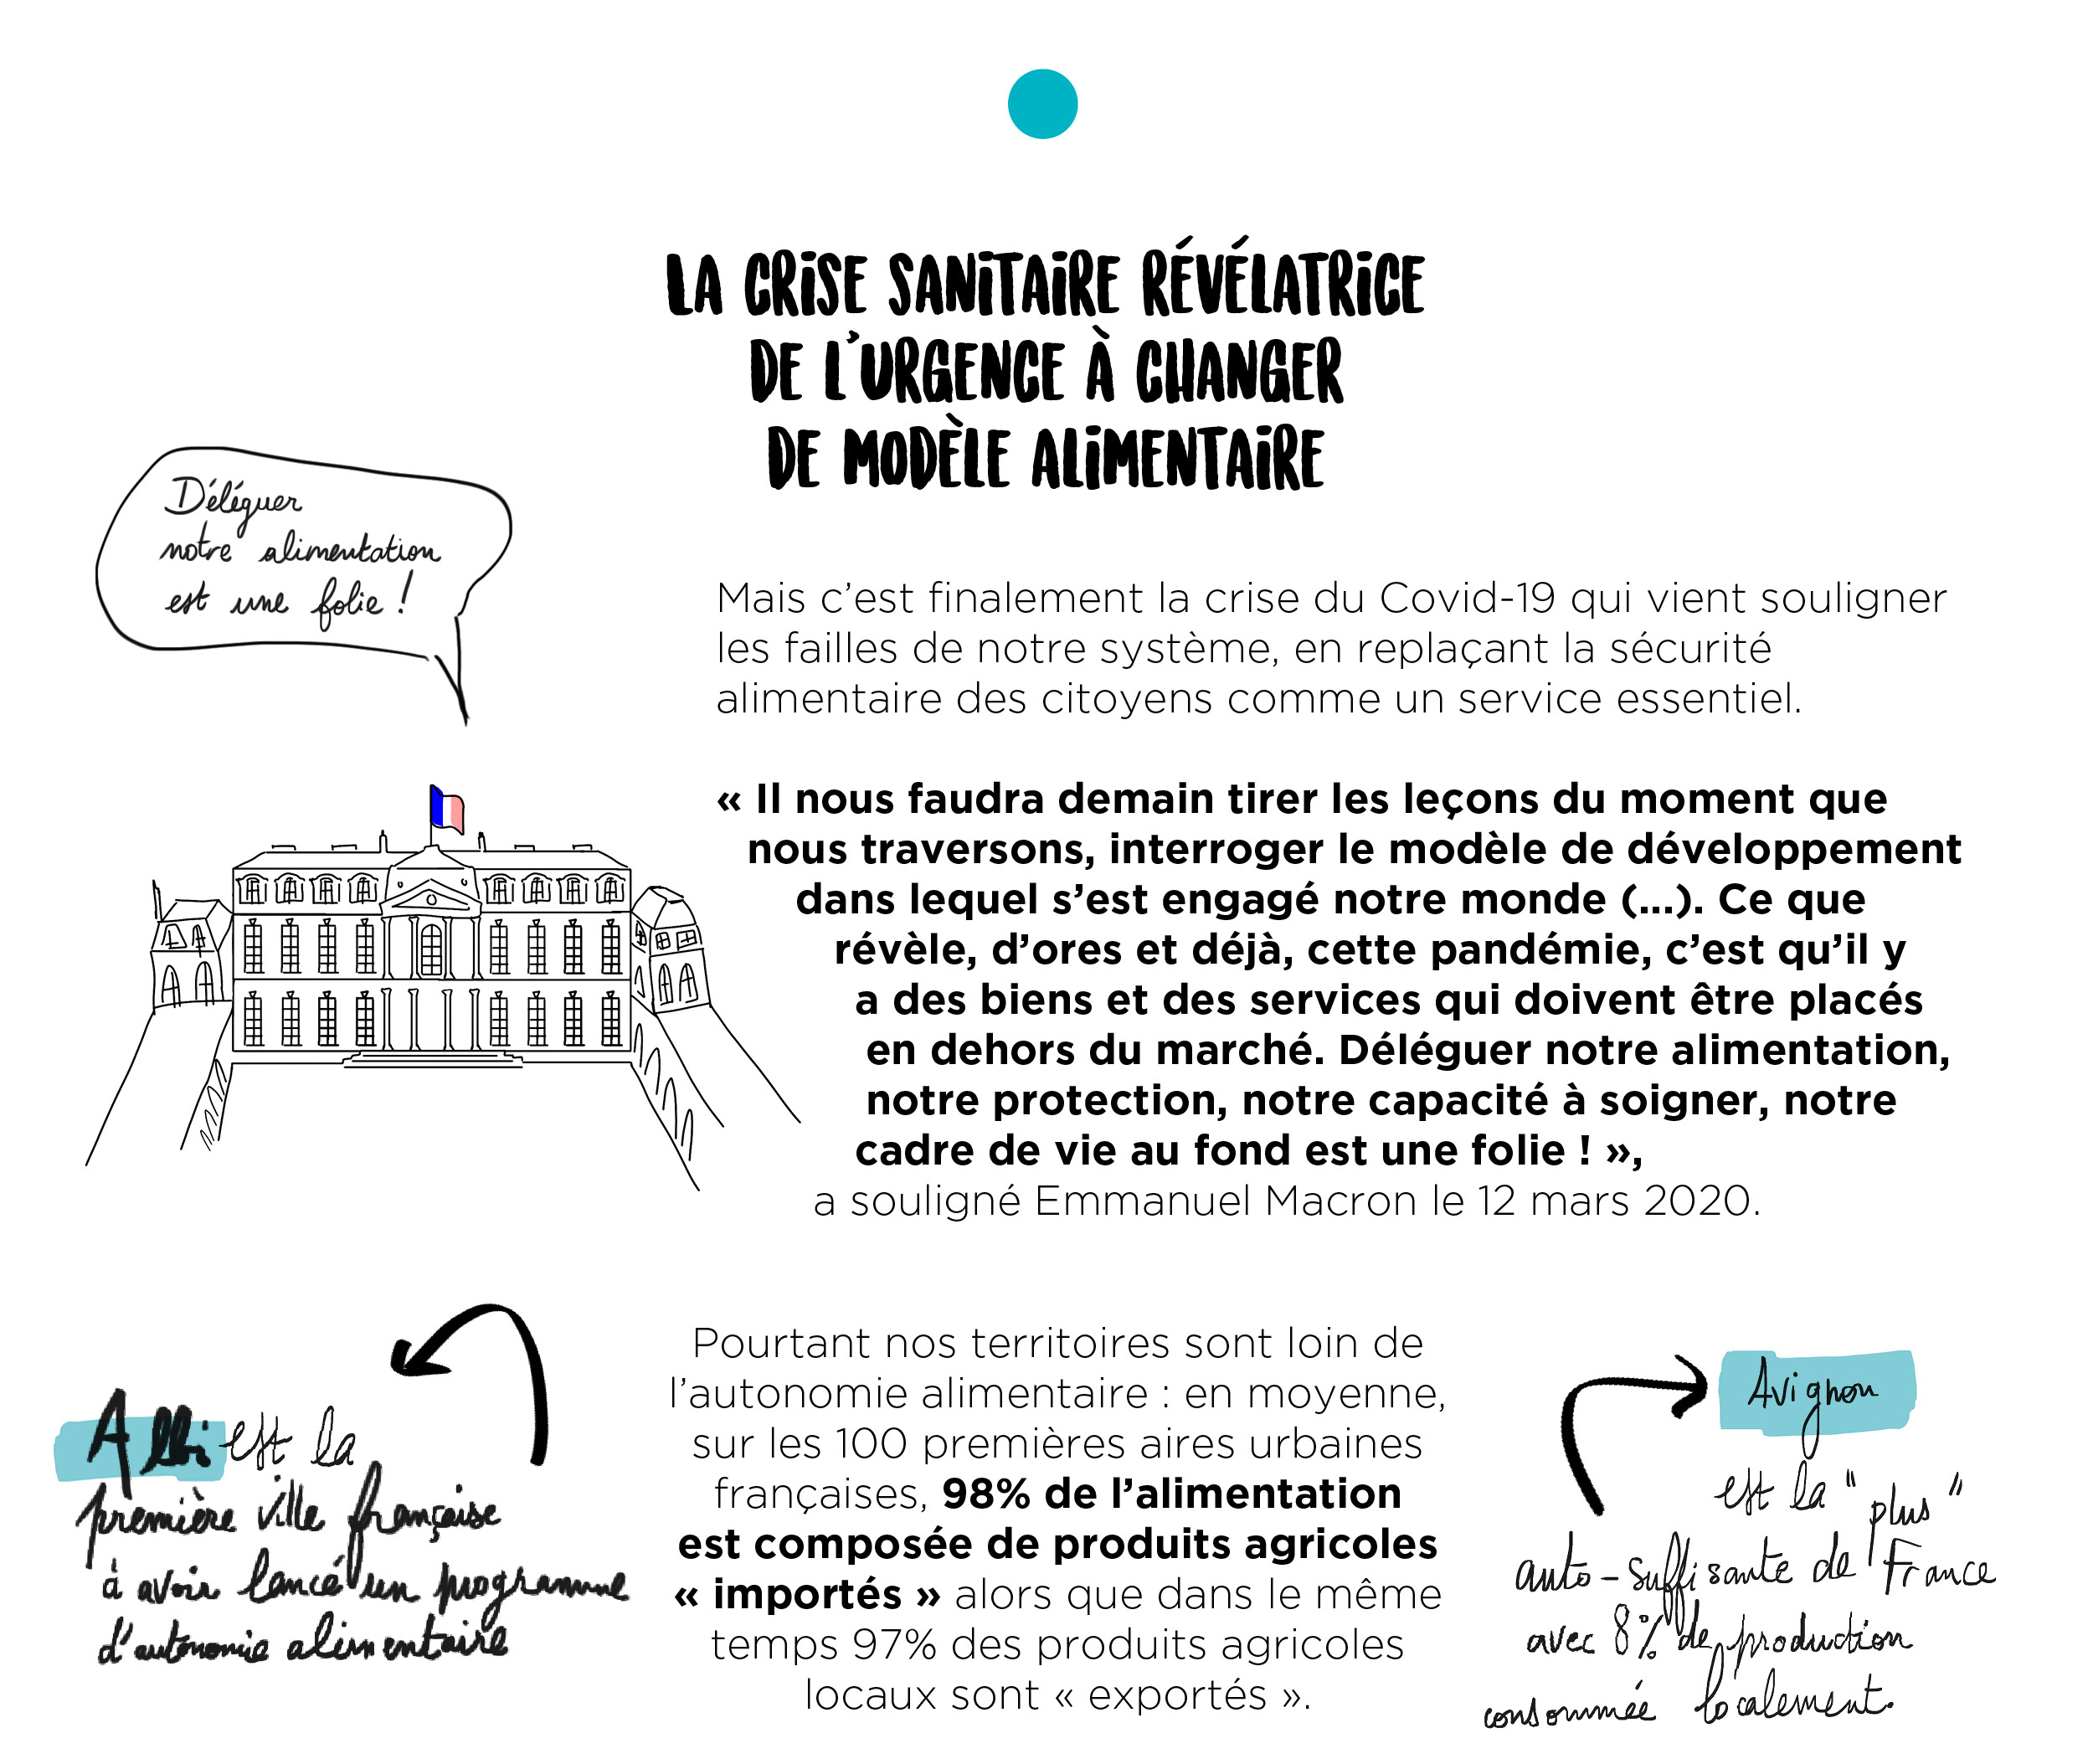 LA CRISE SANITAIRE RÉVÉLATRICE
DE L'URGENCE À CHANGER
DE MODÈLE ALIMENTAIRE
Déléguer
notre alimentation
est une folie !
Mais c’est finalement la crise du Covid-19 qui vient souligner
les failles de notre système, en replaçant la sécurité
alimentaire des citoyens comme un service essentiel.
« Il nous faudra demain tirer les leçons du moment que
nous traversons, interroger le modèle de développement
dans lequel s’est engagé notre monde (...). Ce que
révèle, d’ores et déjà, cette pandémie, c’est qu’il y
a des biens et des services qui doivent être placés
en dehors du marché. Déléguer notre alimentation,
notre protection, notre capacité à soigner, notre
cadre de vie au fond est une folie ! »,
a souligné Emmanuel Macron le 12 mars 2020.
Albi est la
première ville française
à avoir lancé un programme
d'autonomie alimentaire
Pourtant nos territoires sont loin de
l’autonomie alimentaire : en moyenne,
sur les 100 premières aires urbaines
françaises, 98% de l’alimentation
est composée de produits agricoles
« importés » alors que dans le même
temps 97% des produits agricoles
locaux sont « exportés ».
Avignon
est la "plus"
auto-suffisante de France
avec 8% de production
consommée localement.